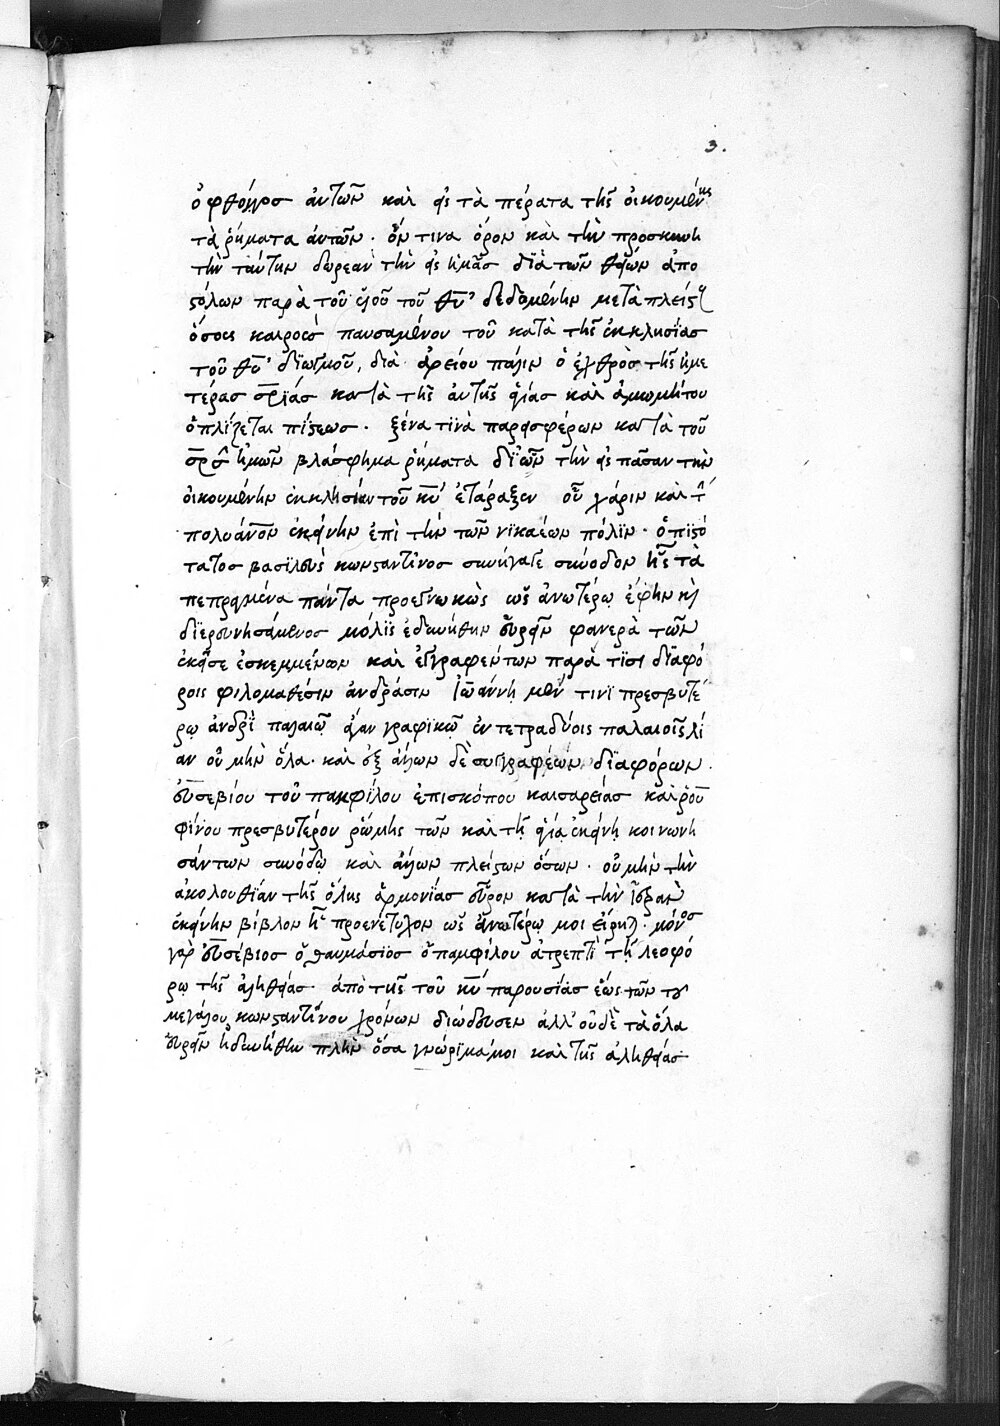 3.
ὁ φθόγγος ἀυτῶν καὶ εἰς τὰ πέρατα τῆς οἰκουμένης
τὰ ῥήματα ἀυτῶν · ὅν τινα ὅρον καὶ τὴν προσκυνη
τὴν ταύτην δωρεὰν τὴν εἰς ἡμᾶς διὰ τῶν θείων ἀπο
στόλων παρὰ τοῦ υἱοῦ τοῦ θυ̅ δεδομένην μετὰ πλείστ
ὅσους καιροὺς παυσαμένου τοῦ κατὰ τῆς ἐκκλησίας
τοῦ θυ̅ διωγμοῦ, διὰ ἀρείου πάλιν ὁ ἐχθρὸς τῆς ἡμε
τέρας σρ̅ίας κατὰ τῆς ἀυτῆς ἁγίας καὶ ἀμωμήτου
ὁπλίζεται πίστεως · ξένα τινὰ παρεισφέρων κατὰ τοῦ
σρ̅ς ἡμῶν βλάσφημα ῥήματα δι' ὧν τὴν εἰς πᾶσαν τὴν
ὀικουμένην ἐκκλησίαν τοῦ κυ̅ ἐτάραξεν οὗ χάριν καὶ τ̂
πολυάνον̅ ἐκείνην ἐπὶ τὴν τῶν νικαέων πόλιν · ὁ πιστό
τατος βασιλεὺς κωνσταντῖνος συνήγαγε σύνοδον ἧς τὰ
πεπραγμένα πάντα προεγνωκὼς ὡς ἀνωτέρω ἔφην κὶ
διερευνησάμενος μόλις ἐδυνήθην εὑρεῖν φανερὰ τῶν
ἐκεῖσε ἐσκεμμένων καὶ ἐγγραφέντων παρά τισι διαφό
ροις φιλομαθέσιν ἀνδράσιν Ἰωάννῃ μέν τινι πρεσβυτέ
ρῳ ἀνδρὶ παλαιῷ ἄγαν γραφικῷ ἐν τετραδίοις παλαιοῖς λί
αν οὐ μὴν ὅλα · καὶ ἐξ ἄλλων δὲ συγγραφέων διαφόρων ·
ἐυσεβίου τοῦ παμφίλου ἐπισκόπου καισαρείας καὶ ῥου
φίνου πρεσβυτέρου ῥώμης τῶν καὶ τῇ ἁγίᾳ ἐκείνῃ κοινωνη
σάντων συνόδῳ καὶ ἄλλων πλείστων ὅσων · οὐ μὴν τὴν
ἀκολουθίαν τῆς ὅλης ἁρμονίας εὗρον κατὰ τὴν ἱερὰν
ἐκείνην βίβλον ἧς προενέτυχον ὡς ἀνωτέρω μοι εἴρητ · μόνος
γὰρ ἐυσέβιος ὁ θαυμάσιος ὁ παμφίλου ἀτρεπτὶ τῇ λεοφό
ρῳ τῆς ἀληθείας · ἀπὸ τῆς τοῦ κυ̅ παρουσίας ἕως τῶν τȣ
μεγάλου κωνσταντίνου χρόνων διώδευσεν ἀλλ' οὐδὲ τὰ ὅλα
ἐυρεῖν ἠδυνήθην πλὴν ὅσα γνώριμά μοι καὶ τῆς ἀληθείας